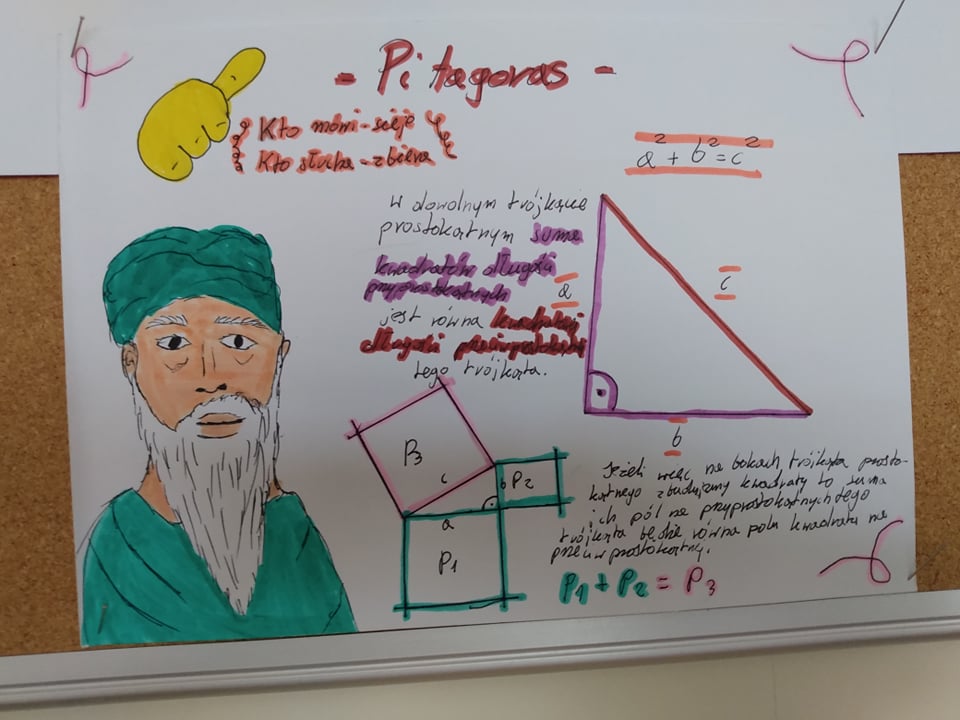 - Pitagoras -
Kto mówi-sieje
Kto słucha-zbiera
a² + b² = c²
W dowolnym trójkącie
prostokątnym suma
kwadratów długości
przyprostokątnych
jest równa kwadratowi
długości przeciwprostokątnej
tego trójkąta.
a
c
b
P3
c
b
P2
a
P1
Jeżeli więc na bokach trójkąta prosto-
kątnego zbudujemy kwadraty to suma
ich pól na przyprostokątnych tego
trójkąta będzie równa polu kwadratu na
przeciwprostokątnej.
P1 + P2 = P3